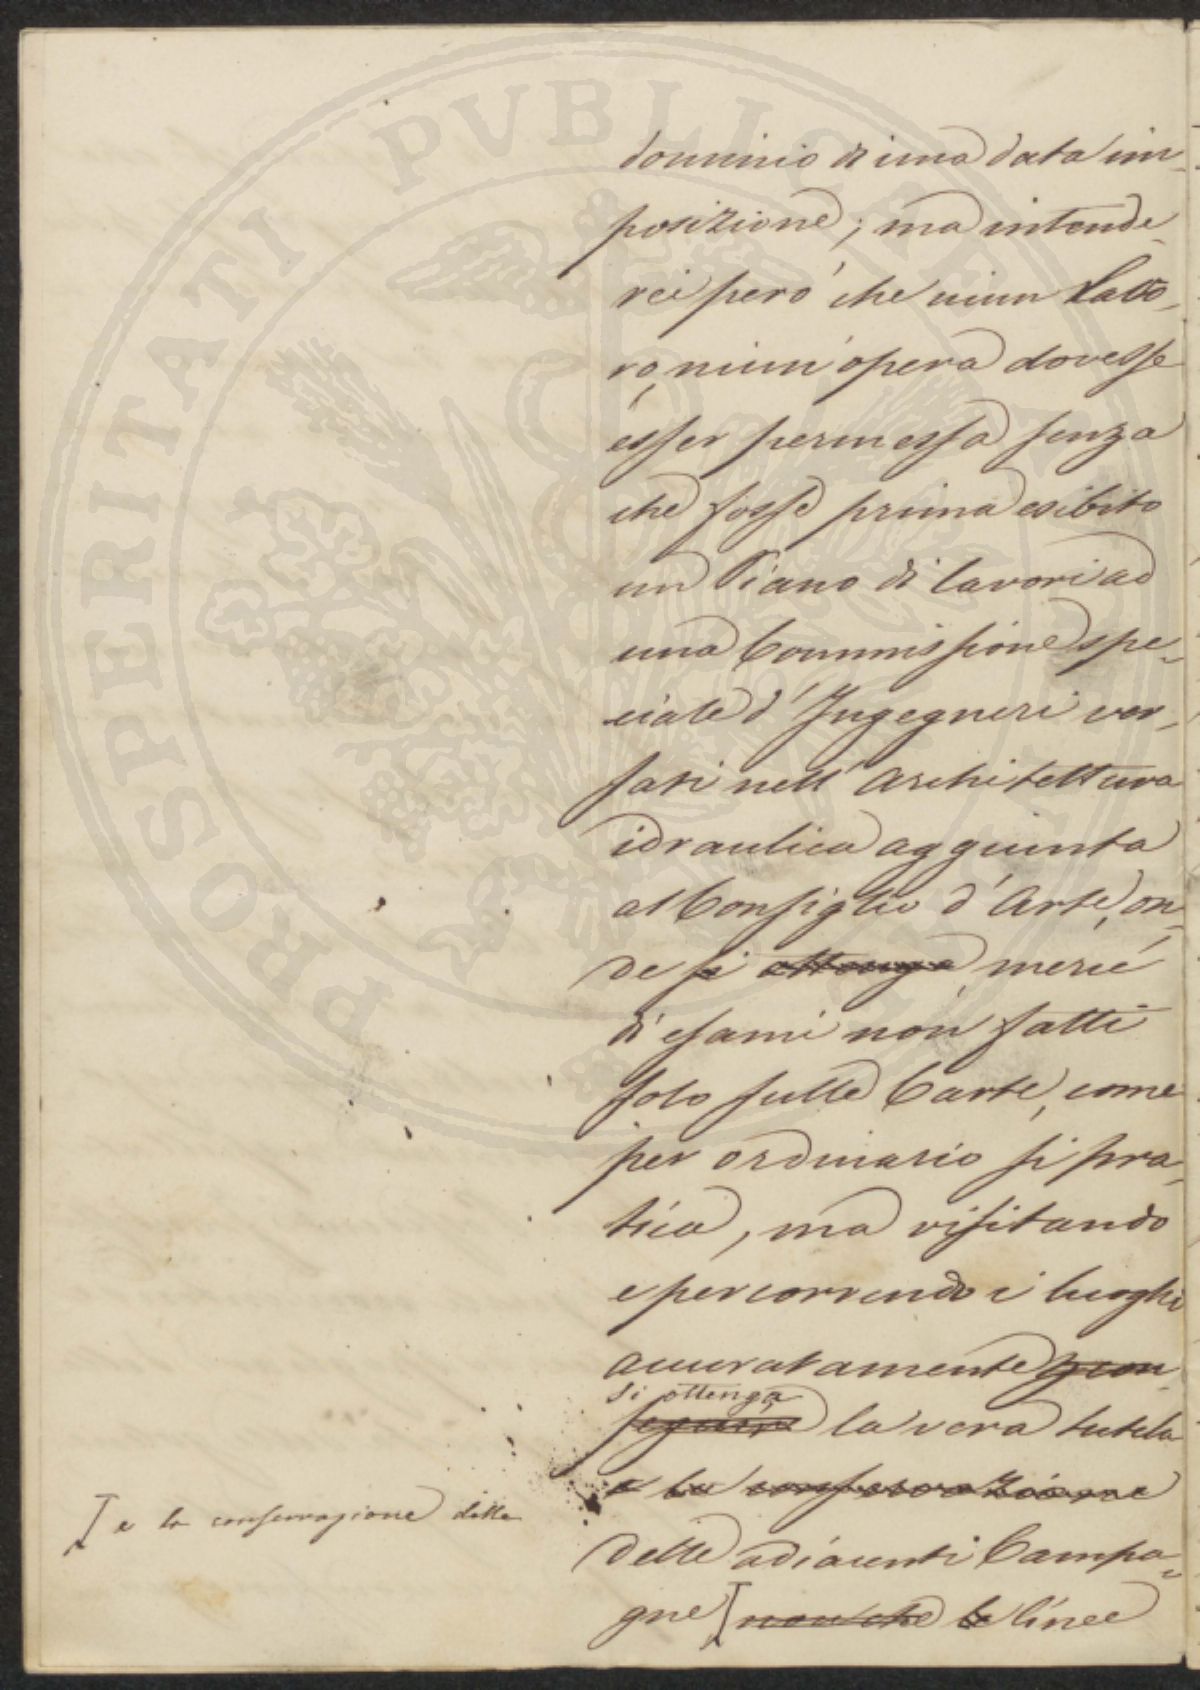 PROSPERITATI PUBLICAE AU
dominio di una data im-
posizione; ma intende-
rei però che niun Latto-
ro, niun'opera dovesse
esser permessa senza
che fosse prima esibito
un Piano di lavori ad
una Commissione spe-
ciale d'Ingegneri ver-
sati nell'Architettura
idraulica aggiunta
al Consiglio d'Arte, on-
de si ottenga mercé
di esami non fatti
solo sulle Carte, come
per ordinario si pra-
tica, ma visitando
e percorrendo i luoghi
accuratamente
si ottenga
seguire la vera tutela
e la conservazione
e la conservazione delle
delle adiacenti Campa-
gne nonché le linee